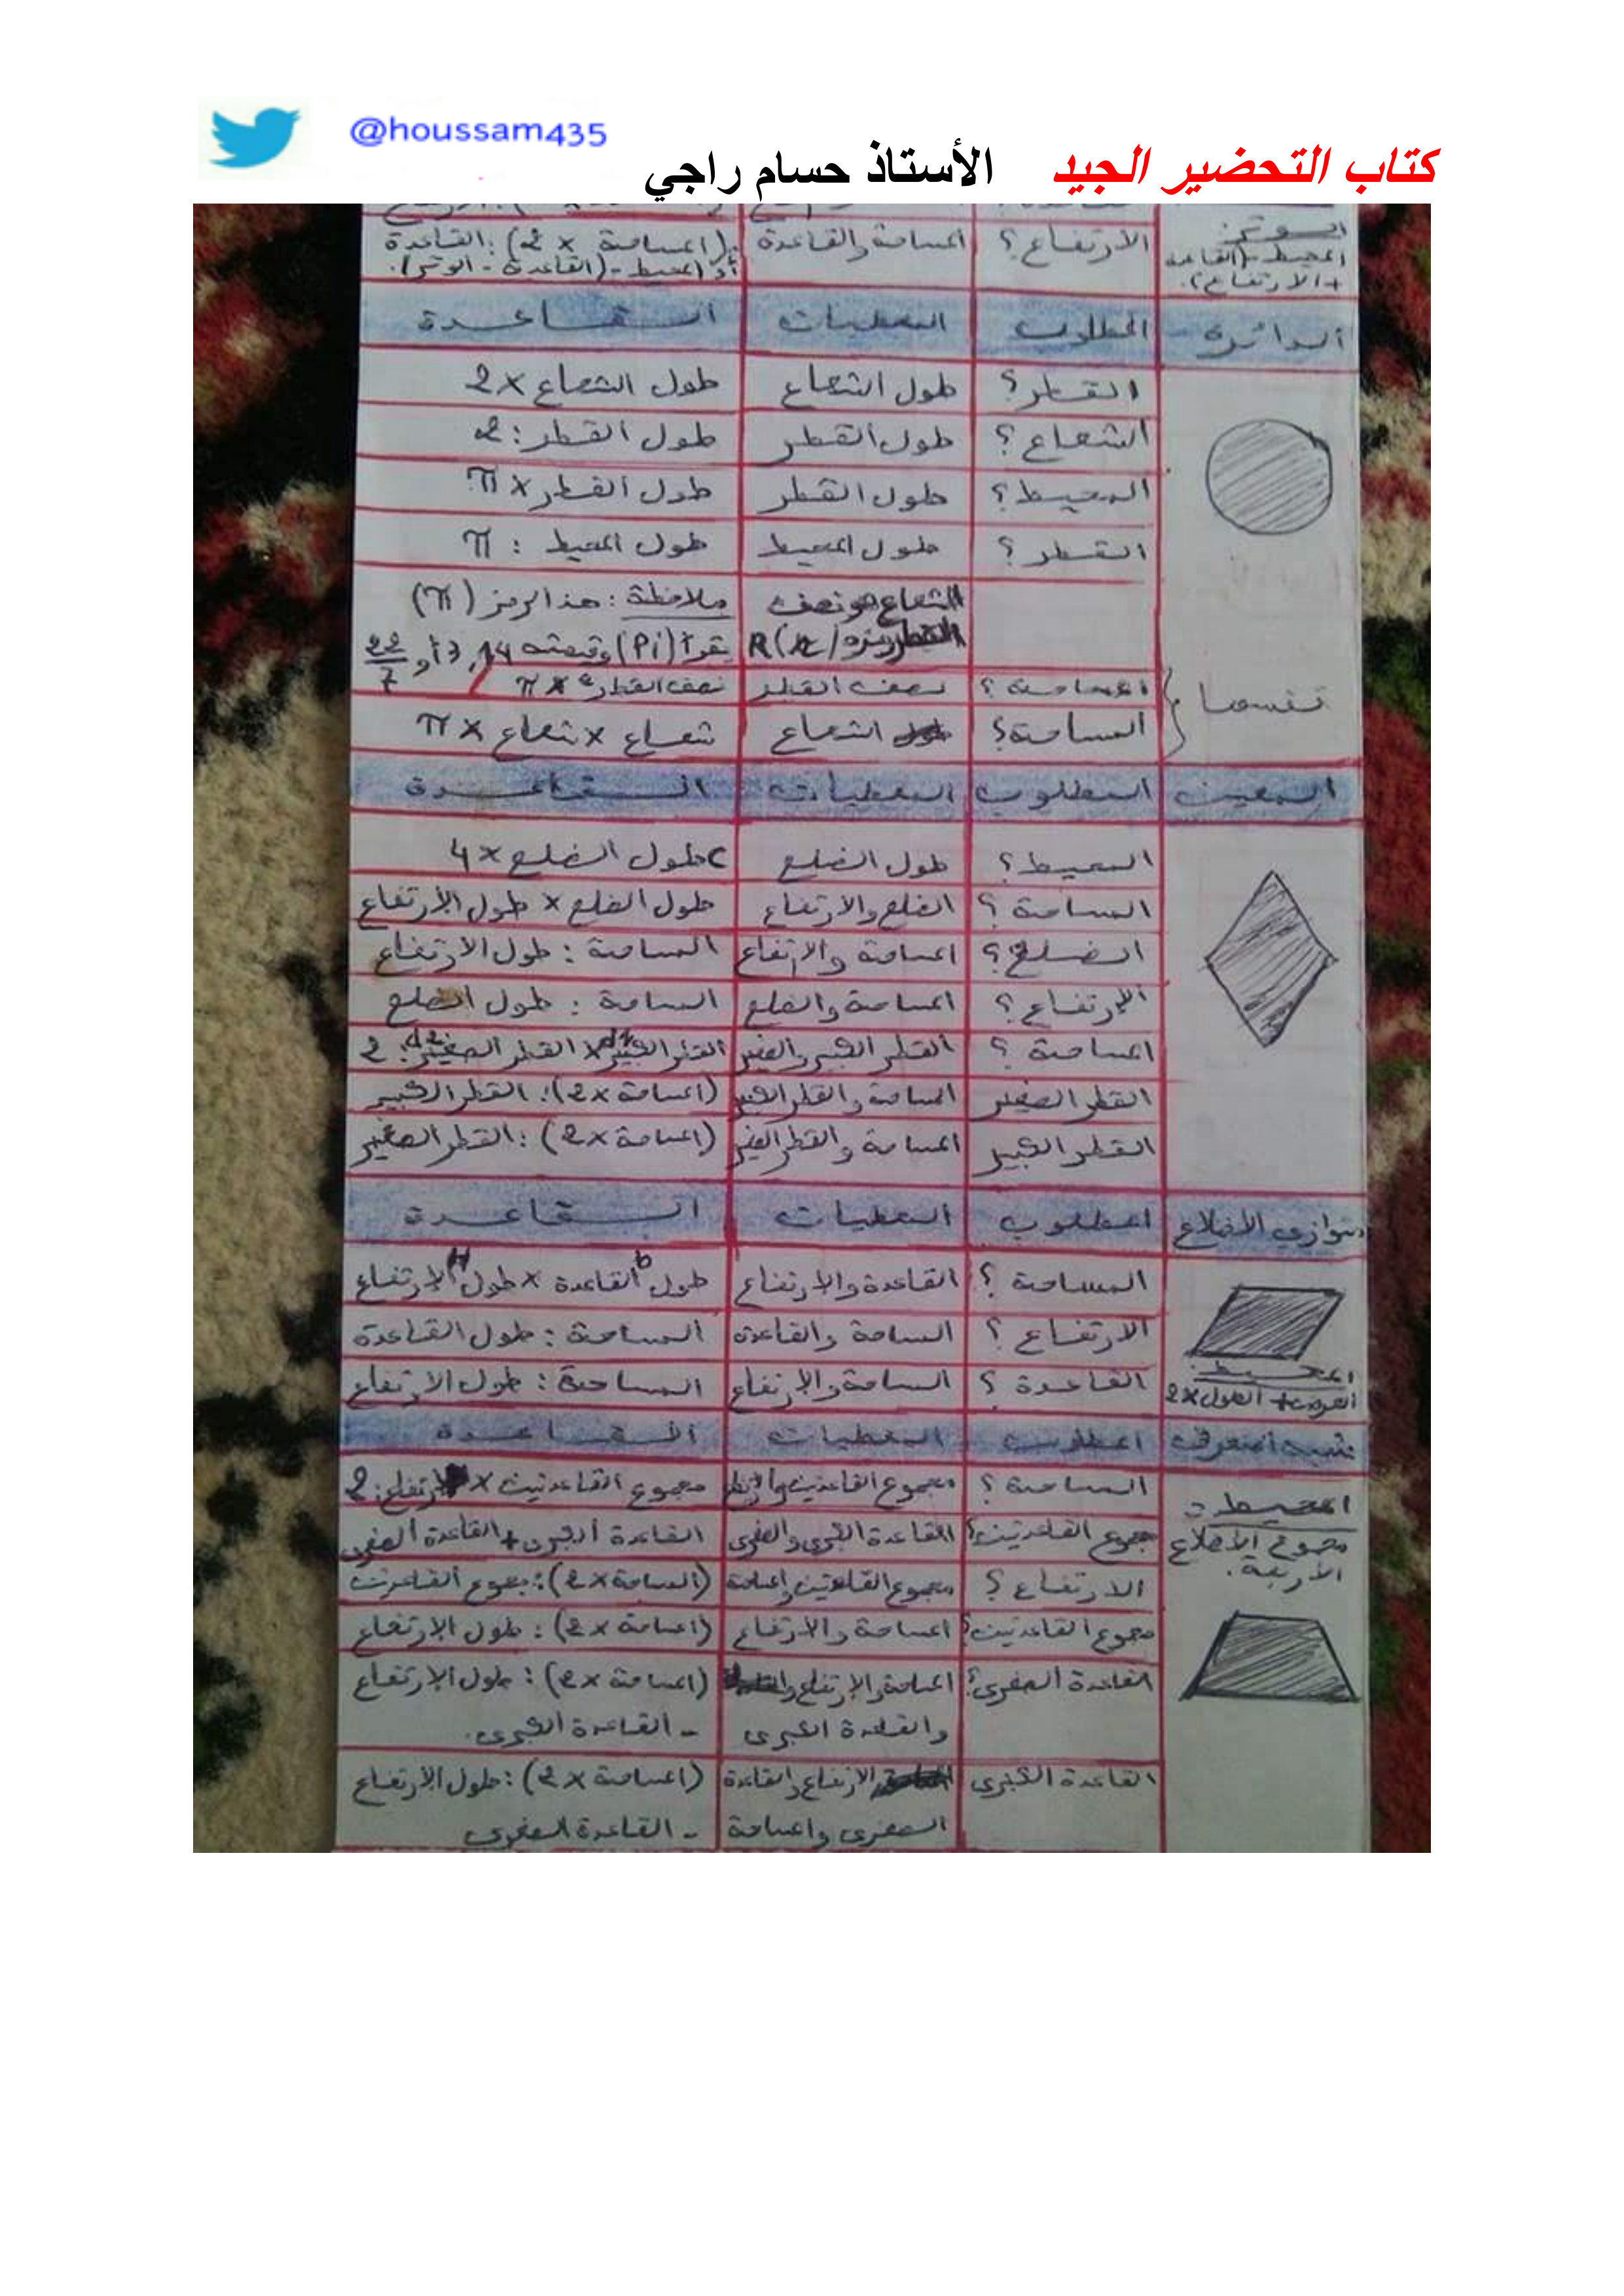 @houssam435
كتاب التحضير الجيد الأستاذ حسام راجي
الوتر: الارتفاع؟ المساحة والقاعدة (المساحة × 2) : القاعدة
المحيط - (القاعدة + الارتفاع). أو المحيط - (القاعدة - الوتر).
الدائرة المطلوب المعطيات القاعدة
القطر؟ طول الشعاع طول الشعاع × 2
الشعاع؟ طول القطر طول القطر : 2
المحيط؟ طول القطر طول القطر × π
القطر؟ طول المحيط طول المحيط : π
الشعاع هو نصف ملاحظة : هذا الرمز (π)
R يقرأ (Pi) وقيمته 3,14 أو 22/7
نفسها
المساحة؟ نصف القطر نصف القطر² × π
المساحة؟ الشعاع شعاع × شعاع × π
المعين المطلوب المعطيات القاعدة
المحيط؟ طول الضلع طول الضلع × 4
المساحة؟ الضلع والارتفاع طول الضلع × طول الارتفاع
الضلع؟ المساحة والارتفاع المساحة : طول الارتفاع
الارتفاع؟ المساحة والضلع المساحة : طول الضلع
المساحة؟ القطر الكبير والصغير القطر الكبير × القطر الصغير : 2
القطر الصغير المساحة والقطر الكبير (المساحة × 2) : القطر الكبير
القطر الكبير المساحة والقطر الصغير (المساحة × 2) : القطر الصغير
متوازي الأضلاع المطلوب المعطيات القاعدة
المساحة؟ القاعدة والارتفاع طول القاعدة b × طول الارتفاع H
الارتفاع؟ المساحة والقاعدة المساحة : طول القاعدة
القاعدة؟ المساحة والارتفاع المساحة : طول الارتفاع
المحيط:
العرض + الطول × 2
شبه المنحرف المطلوب المعطيات القاعدة
المساحة؟ مجموع القاعدتين والارتفاع مجموع القاعدتين × الارتفاع : 2
المحيط =
مجموع الأضلاع
الأربعة.
مجموع القاعدتين؟ القاعدة الكبرى والصغرى القاعدة الكبرى + القاعدة الصغرى
الارتفاع؟ مجموع القاعدتين والمساحة (المساحة × 2) : مجموع القاعدتين
مجموع القاعدتين؟ المساحة والارتفاع (المساحة × 2) : طول الارتفاع
القاعدة الصغرى؟ المساحة والارتفاع (المساحة × 2) : طول الارتفاع
والقاعدة الكبرى - القاعدة الكبرى.
القاعدة الكبرى الارتفاع والقاعدة (المساحة × 2) : طول الارتفاع
الصغرى والمساحة - القاعدة الصغرى